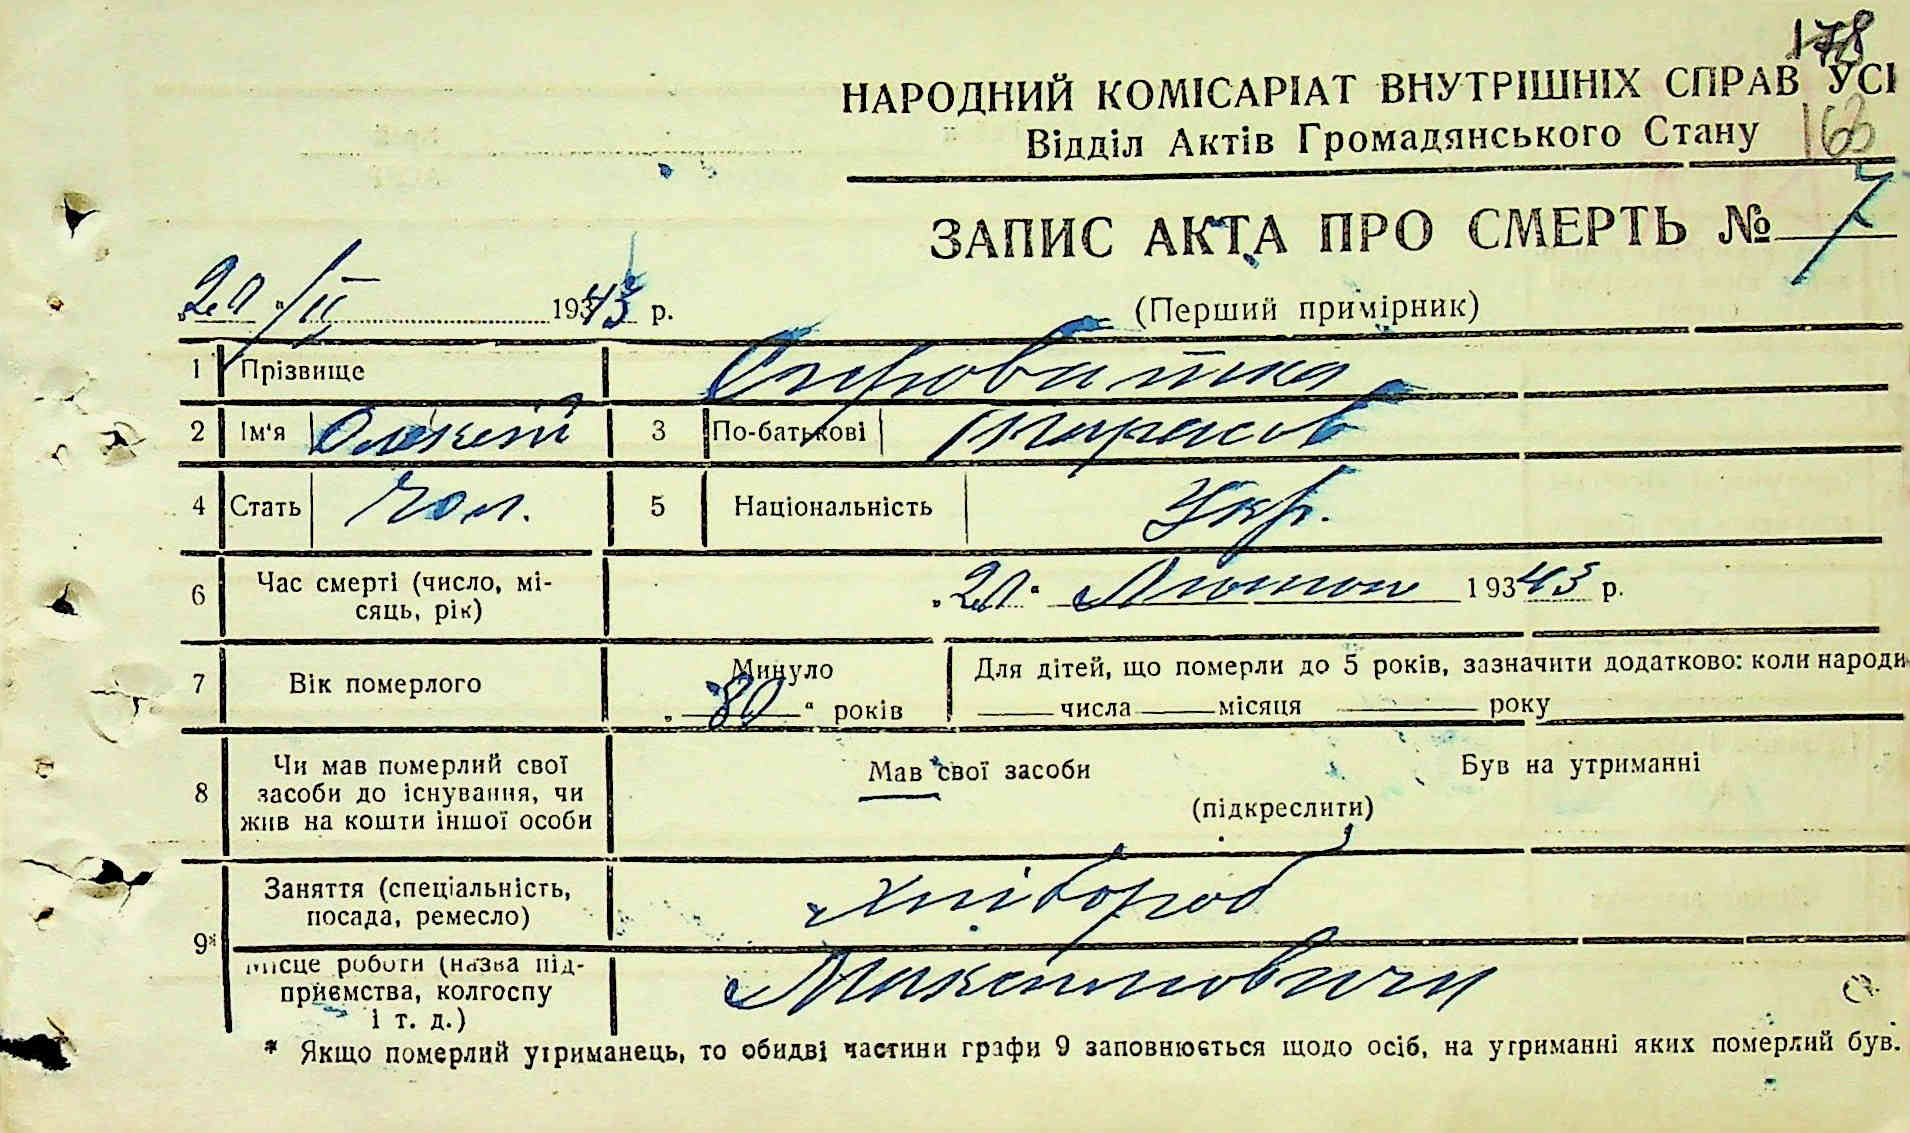 178
НАРОДНИЙ КОМІСАРІАТ ВНУТРІШНІХ СПРАВ УСІ
Відділ Актів Громадянського Стану 163
ЗАПИС АКТА ПРО СМЕРТЬ № 7
20 "/II 1943 р. (Перший примірник)
1 Прізвище Сироватка
2 Ім'я Олексій 3 По-батькові Тарасов
4 Стать чол. 5 Національність Укр.
6 Час смерті (число, мі-
сяць, рік) „20" Лютого 1943 р.
7 Вік померлого Минуло „80" років Для дітей, що померли до 5 років, зазначити додатково: коли народи
числа місяця року
8 Чи мав померлий свої
засоби до існування, чи
жив на кошти іншої особи
Мав свої засоби Був на утриманні
(підкреслити)
9* Заняття (спеціальність,
посада, ремесло) хлібороб
Місце роботи (назва під-
приємства, колгоспу
і т. д.) Максимовичи
* Якщо померлий утриманець, то обидві частини графи 9 заповнюється щодо осіб, на утриманні яких померлий був.